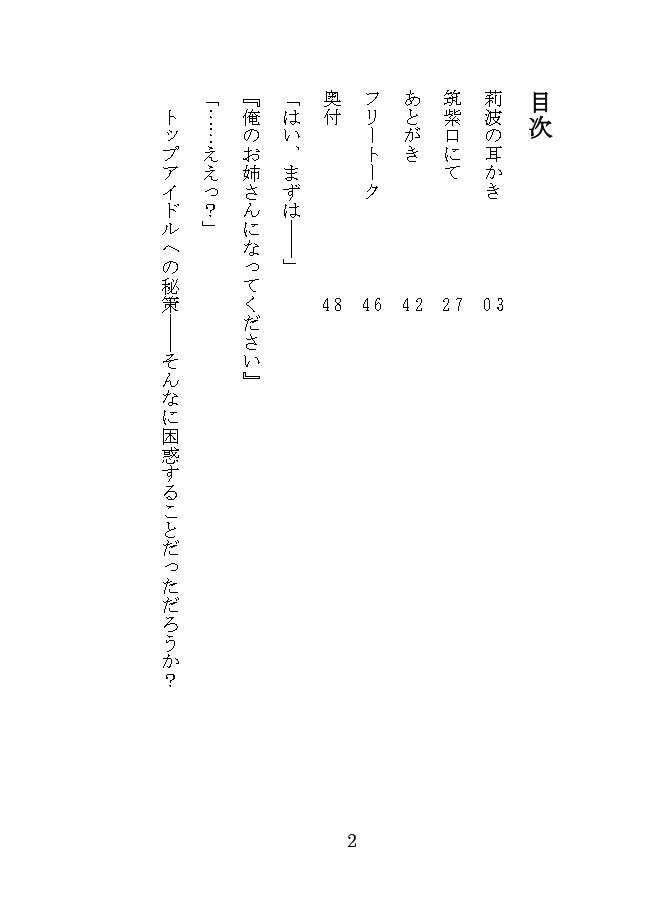 目次
莉波の耳かき　03
筑紫口にて　27
あとがき　42
フリートーク　46
奥付　48
「はい、まずは――」
『俺のお姉さんになってください』
「……ええっ？」
　トップアイドルへの秘策――そんなに困惑することだっただろうか？
2